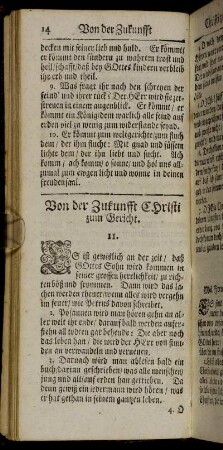 14 Von der Zukunfft
decken mit seiner lieb und huld. Er kömmet/
er kömmt den sündern zu wahrem trost und
heil/schafft/daß bey GOttes kindern verbleib
ihr erb und theil.
9. Was fragt ihr nach den schreyen der
feind' und ihrer tück? Der HErr wird sie zer-
streuen in einem augenblick. Er kömmt/er
kömmt ein König/dem warlich alle feind auf
erden viel zu wenig zum widerstande seynd.
10. Er kömmt zum weltgerichte/zum fluch
dem/ der ihm flucht: Mit gnad und süssem
lichte dem/ der ihn liebt und sucht. Ach
komm/ ach komm/ o sonne/ und hol uns all-
zumal zum ewgen licht und wonne in deinen
freudensaal.
Von der Zukunfft CHristi
zum Gericht.
11.
ES ist gewißlich an der zeit/ daß
GOttes Sohn wird kommen in
seiner grossen herrlichkeit/ zu rich-
ten böß und frommen. Dann wird das la-
chen werden theuer/wenn alles wird vergehn
im feuer/ wie Petrus davon schreibet.
2. Posaunen wird man hören gehn an al-
ler welt ihr ende/ darauf bald werden aufer-
stehn all todten gar behende: Die aber noch
das leben han/ die wird der HErr von stun-
den an verwandeln und verneuen.
3. Darnach wird man ablesen bald ein
buch/darinn geschrieben/was alle menschen/
jung und alt/auf erden han getrieben. Da
denn gewiß ein iedermann wird hören/ was
er hat gethan in seinem gantzen leben.
4. O